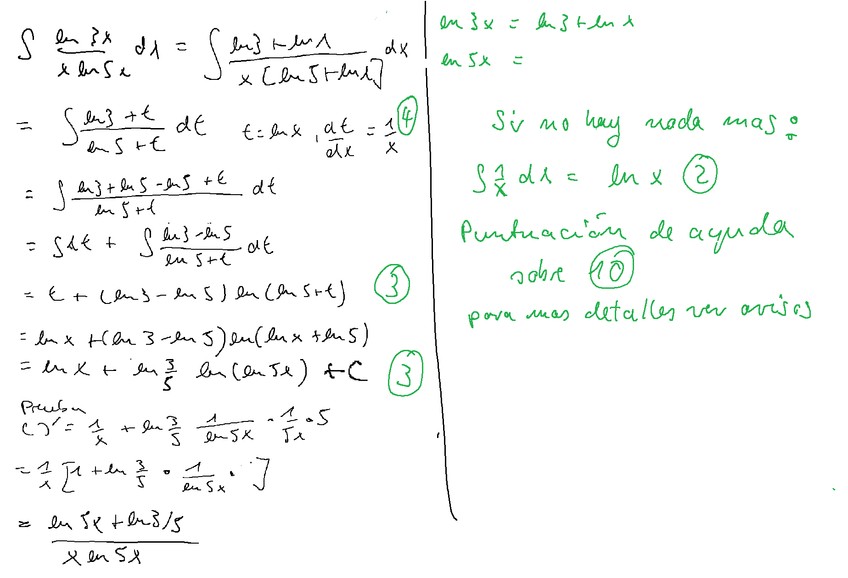 ∫ ln 3x / (x ln 5x) dx = ∫ (ln 3 + ln x) / (x [ln 5 + ln x]) dx
= ∫ (ln 3 + t) / (ln 5 + t) dt   t = ln x, dt/dx = 1/x ④
= ∫ (ln 3 + ln 5 - ln 5 + t) / (ln 5 + t) dt
= ∫ dt + ∫ (ln 3 - ln 5) / (ln 5 + t) dt
= t + (ln 3 - ln 5) ln (ln 5 + t) ③
= ln x + (ln 3 - ln 5) ln (ln x + ln 5)
= ln x + ln 3/5 ln (ln 5x) + C ③
Prueba
( )' = 1/x + ln 3/5 1/(ln 5x) · 1/(5x) · 5
= 1/x [1 + ln 3/5 · 1/(ln 5x) · ]
= (ln 5x + ln 3/5) / (x ln 5x)
ln 3x = ln 3 + ln x
ln 5x =
Si no hay nada mas :
∫ 1/x dx = ln x ②
Puntuación de ayuda
sobre ⑩
para mas detalles ver avisos